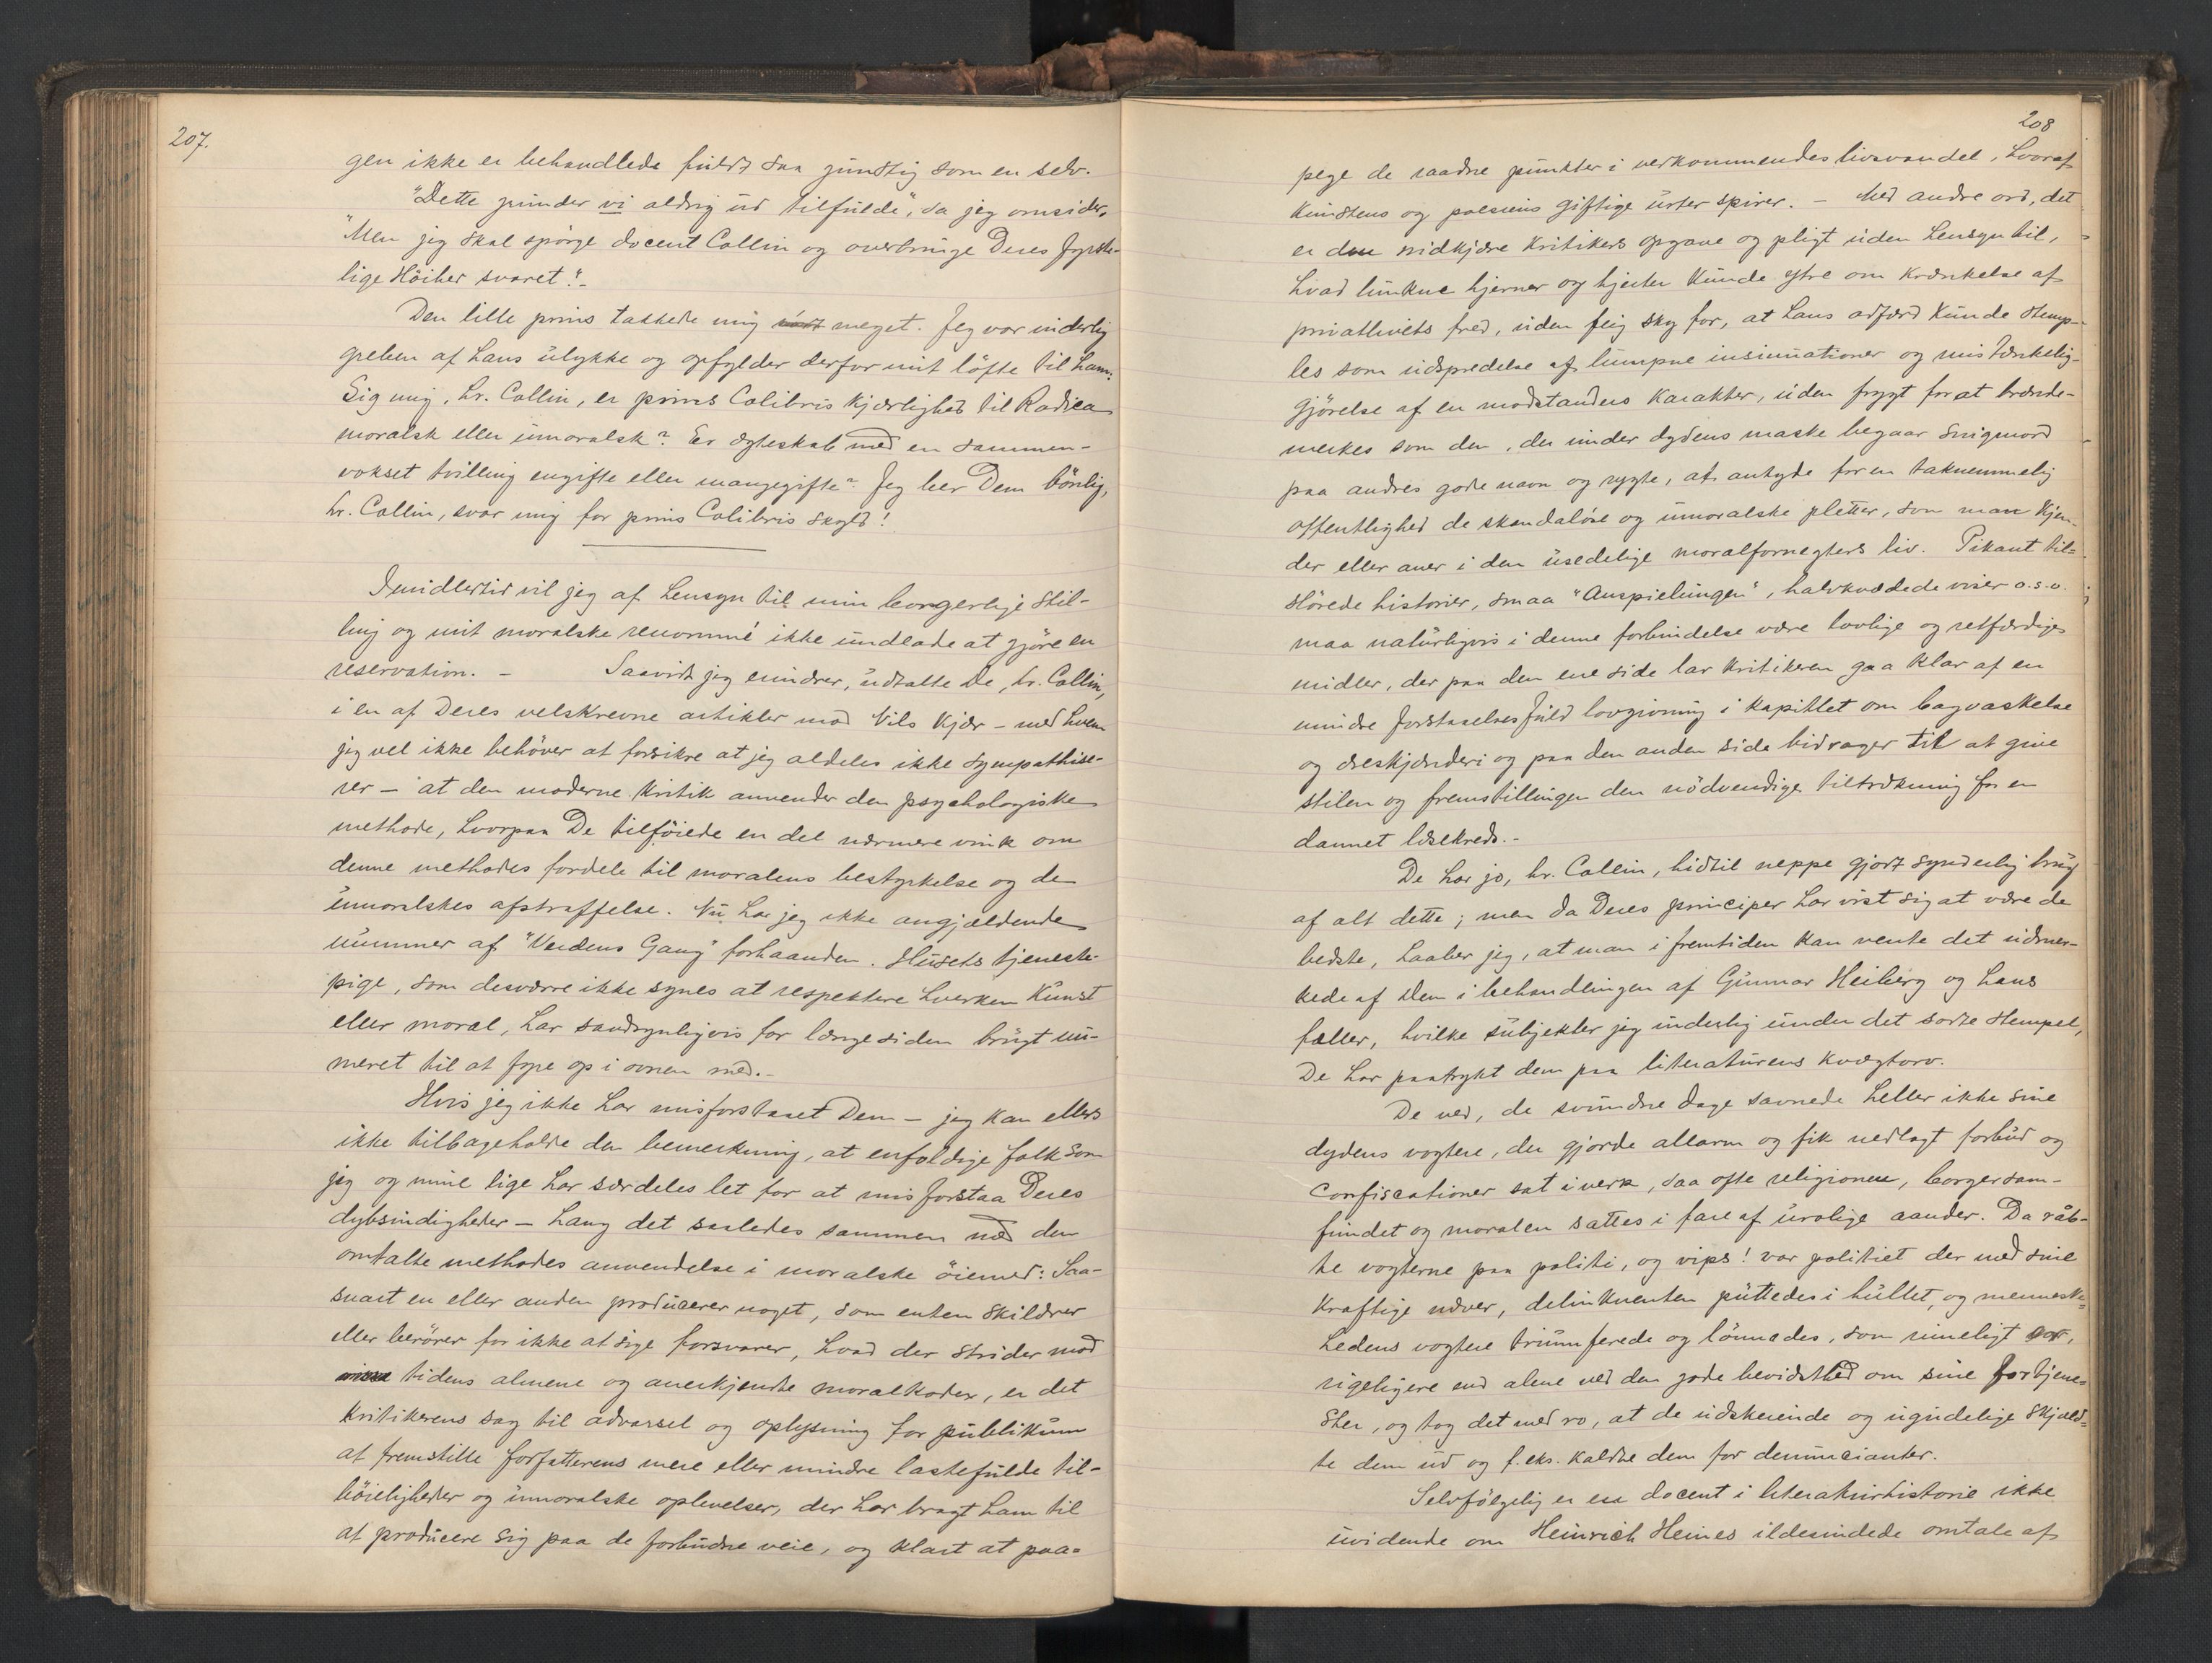 207.
gen ikke er behandlede fuldt saa gunstig som en selv.
"Dette grunder vi aldrig ud tilfulde", sa jeg omsider.
"Men jeg skal spörge docent Collin og overbringe Deres fyrste-
lige Höihed svaret".-
Den lille prins takkede mig meget. Jeg var inderlig
greben af hans ulykke og opfylder derfor mit löfte til ham:
Sig mig, hr. Collin, er prins Colibris kjærlighed til Radica
moralsk eller umoralsk? Er ægteskab med en sammen-
vokset tvilling engifte eller mangegifte? Jeg ber Dem bönlig,
hr. Collin, svar mig for prins Colibris skyld!
Imidlertid vil jeg af hensyn til min borgerlige stil-
ling og mit moralske renommé ikke undlade at gjöre en
reservation. - Saavidt jeg erindrer, udtalte De, hr. Collin,
i en af Deres velskrevne artikler mod Nils Kjær - med hvem
jeg vel ikke behöver at forsikre at jeg aldeles ikke sympathise-
rer - at den moderne kritik anvender den psychologiske
methode, hvorpaa De tilföiede en del nærmere vink om
denne methodes fordele til moralens bestyrkelse og de
umoralskes afstraffelse. Nu har jeg ikke angjældende
nummer af "Verdens Gang" forhaanden. Husets tjeneste-
pige, som desværre ikke synes at respektere hverken kunst
eller moral, har sandsynligvis for længe siden brugt nu-
meret til at fyre op i ovnen med.-
Hvis jeg ikke har misforstaaet Dem - jeg kan ellers
ikke tilbageholde den bemerkning, at enfoldige folk som
jeg og mine lige har særdeles let for at misforstaa Deres
dybsindigheder - hang det saaledes sammen med den
omtalte methodes anvendelse i moralske öiemed: Saa-
snart en eller anden producerer noget, som enten skildrer
eller berörer for ikke at sige forsvarer, hvad der strider mod
tidens almene og anerkjendte moralkodex, er det
kritikerens sag til advarsel og oplysning for publikum
at fremstille forfatterens mere eller mindre lastefulde til-
böieligheder og umoralske oplevelser, der har bragt ham til
at producere sig paa de forbudne veie, og klart at paa-
208
pege de raadne punkter i vedkommendes livsvandel, hvoraf
kunstens og poesiens giftige urter spirer. - Med andre ord, det
er den nidkjære kritikers opgave og pligt uden hensyn til,
hvad lunkne hjerner og hjerter kunde ytre om krænkelse af
privatlivets fred, uden feig sky for, at hans adfærd kunde stemp-
les som udspredelse af lumpne insinuationer og mistænkelig-
gjörelse af en modstanders karakter, uden frygt for at brænde-
merkes som den, der under dydens maske begaar snigmord
paa andres gode navn og rygte, at antyde for en taknemmelig
offentlighed de skandalöse og umoralske pletter, som man kjen-
der eller aner i den usedelige moralfornegters liv. Pikant til-
slörede historier, smaa "Anspielungen", halvkvædede viser o.s.v.
maa naturligvis i denne forbindelse være lovlige og retfærdige
midler, der paa den ene side lar kritikeren gaa klar af en
mindre forstaaelsesfuld lovgivning i kapitlet om bagvaskelse
og æreskjænderi og paa den anden side bidrager til at give
stilen og fremstillingen den nödvendige tiltrækning for en
dannet læsekreds.-
De har jo, hr. Collin, hidtil neppe gjort synderlig brug
af alt dette; men da Deres principer har vist sig at være de
bedste, haaber jeg, at man i fremtiden kan vente det udmer-
kede af Dem i behandlingen af Gunnar Heiberg og hans
fæller, hvilke subjekter jeg inderlig under det sorte stempel,
De har paatrykt dem paa literaturens kvægtorv.
De ved, de svundne dage savnede heller ikke sine
dydens vogtere, der gjorde allarm og fik nedlagt forbud og
confiscationer sat i verk, saa ofte religionen, borgersam-
fundet og moralen sattes i fare af urolige aander. Da råb-
te vogterne paa politi, og vips! var politiet der med sine
kraftige næver, delinkventen puttedes i hullet, og menneske-
hedens vogtere triumferede og lönnedes, som rimeligt var,
rigeligere end alene ved den gode bevidsthed om sine fortjene-
ster, og tog det med ro, at de udskeiende og ugudelige skjæld-
te dem ud og f. eks. kaldte dem for denuncianter.
Selvfölgelig er en docent i literaturhistorie ikke
uvidende om Heinrich Heines ildesindede omtale af